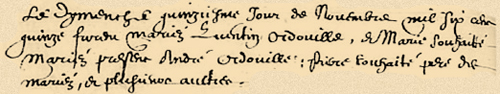 Le dymenche quinziesme Jour de Novembre mil six cens
quinze furent mariez Quentin Ordouille, et Marie Souhaité
Mariez presens André Ordouille : pierre Souhaité pere des
mariez, et plusieurs aultres.